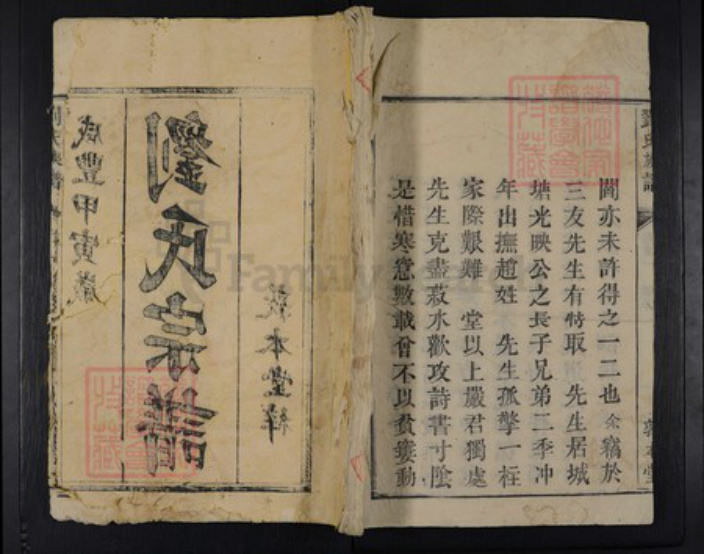 劉氏族譜
敦本堂
間亦未許得之一二也余竊於
三友先生有特取 先生居城
塘光映公之長子兄弟二季冲
年出撫趙姓 先生孤擎一柱
家際艱難 堂以上嚴君獨處
先生克盡菽水歡攻詩書寸陰
是惜寒意數載曾不以貧窶動
咸豐甲寅歲
劉氏宗譜
敦本堂
特藏
FamilySearch